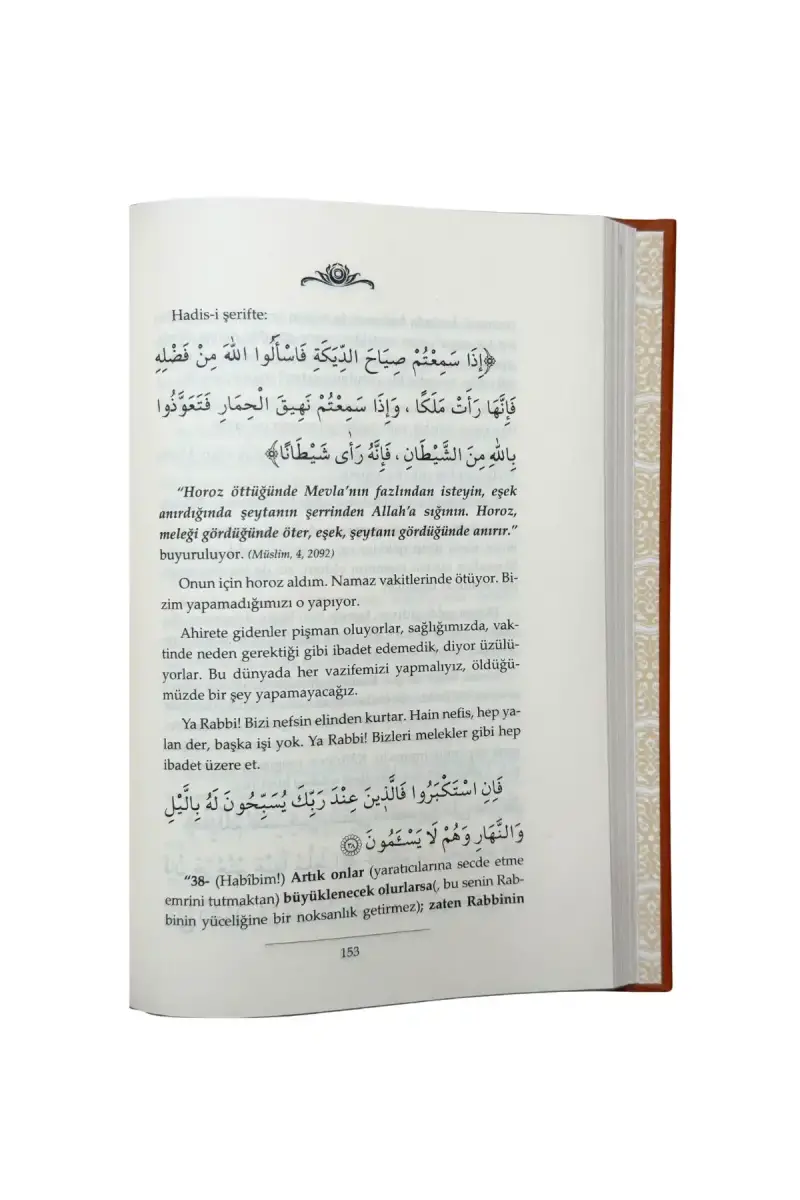 Hadis-i şerifte:
﴿إِذَا سَمِعْتُمْ صِيَاحَ الدِّيَكَةِ فَاسْأَلُوا اللّٰهَ مِنْ فَضْلِهِ
فَإِنَّهَا رَأَتْ مَلَكًا ، وَإِذَا سَمِعْتُمْ نَهِيقَ الْحِمَارِ فَتَعَوَّذُوا
بِاللّٰهِ مِنَ الشَّيْطَانِ ، فَإِنَّهُ رَأٰى شَيْطَانًا﴾
“Horoz öttüğünde Mevla’nın fazlından isteyin, eşek
anırdığında şeytanın şerrinden Allah’a sığının. Horoz,
meleği gördüğünde öter, eşek, şeytanı gördüğünde anırır.”
buyuruluyor. (Müslim, 4, 2092)
Onun için horoz aldım. Namaz vakitlerinde ötüyor. Bi-
zim yapamadığımızı o yapıyor.
Ahirete gidenler pişman oluyorlar, sağlığımızda, vak-
tinde neden gerektiği gibi ibadet edemedik, diyor üzülü-
yorlar. Bu dünyada her vazifemizi yapmalıyız, öldüğü-
müzde bir şey yapamayacağız.
Ya Rabbi! Bizi nefsin elinden kurtar. Hain nefis, hep ya-
lan der, başka işi yok. Ya Rabbi! Bizleri melekler gibi hep
ibadet üzere et.
فَاِنِ اسْتَكْبَرُوا فَالَّذ۪ينَ عِنْدَ رَبِّكَ يُسَبِّحُونَ لَهُ بِالَّيْلِ
وَالنَّهَارِ وَهُمْ لَا يَسْـَٔمُونَ ﴿٣٨﴾
“38- (Habîbim!) Artık onlar (yaratıcılarına secde etme
emrini tutmaktan) büyüklenecek olurlarsa(, bu senin Rab-
binin yüceliğine bir noksanlık getirmez); zaten Rabbinin
153